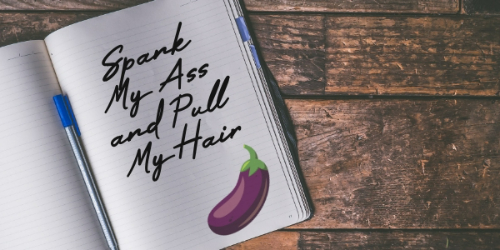 Spank
My Ass
and Pull
My Hair